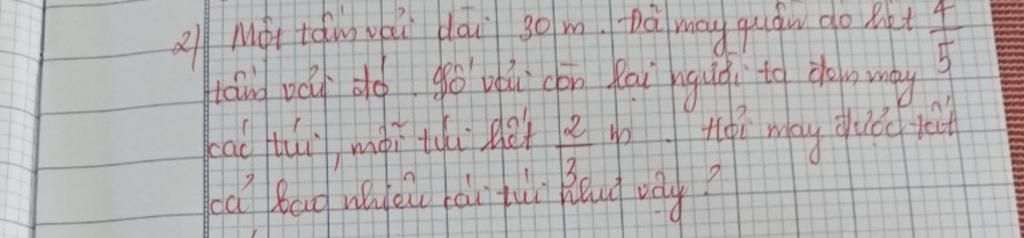 2) Một tấm vải dài 30 m. Đã may quần áo hết 4/5
tấm vải đó. Số vải còn lại người ta đem may
các túi, mỗi túi hết 2/3 m. Hỏi may được tất
cả bao nhiêu cái túi như vậy?